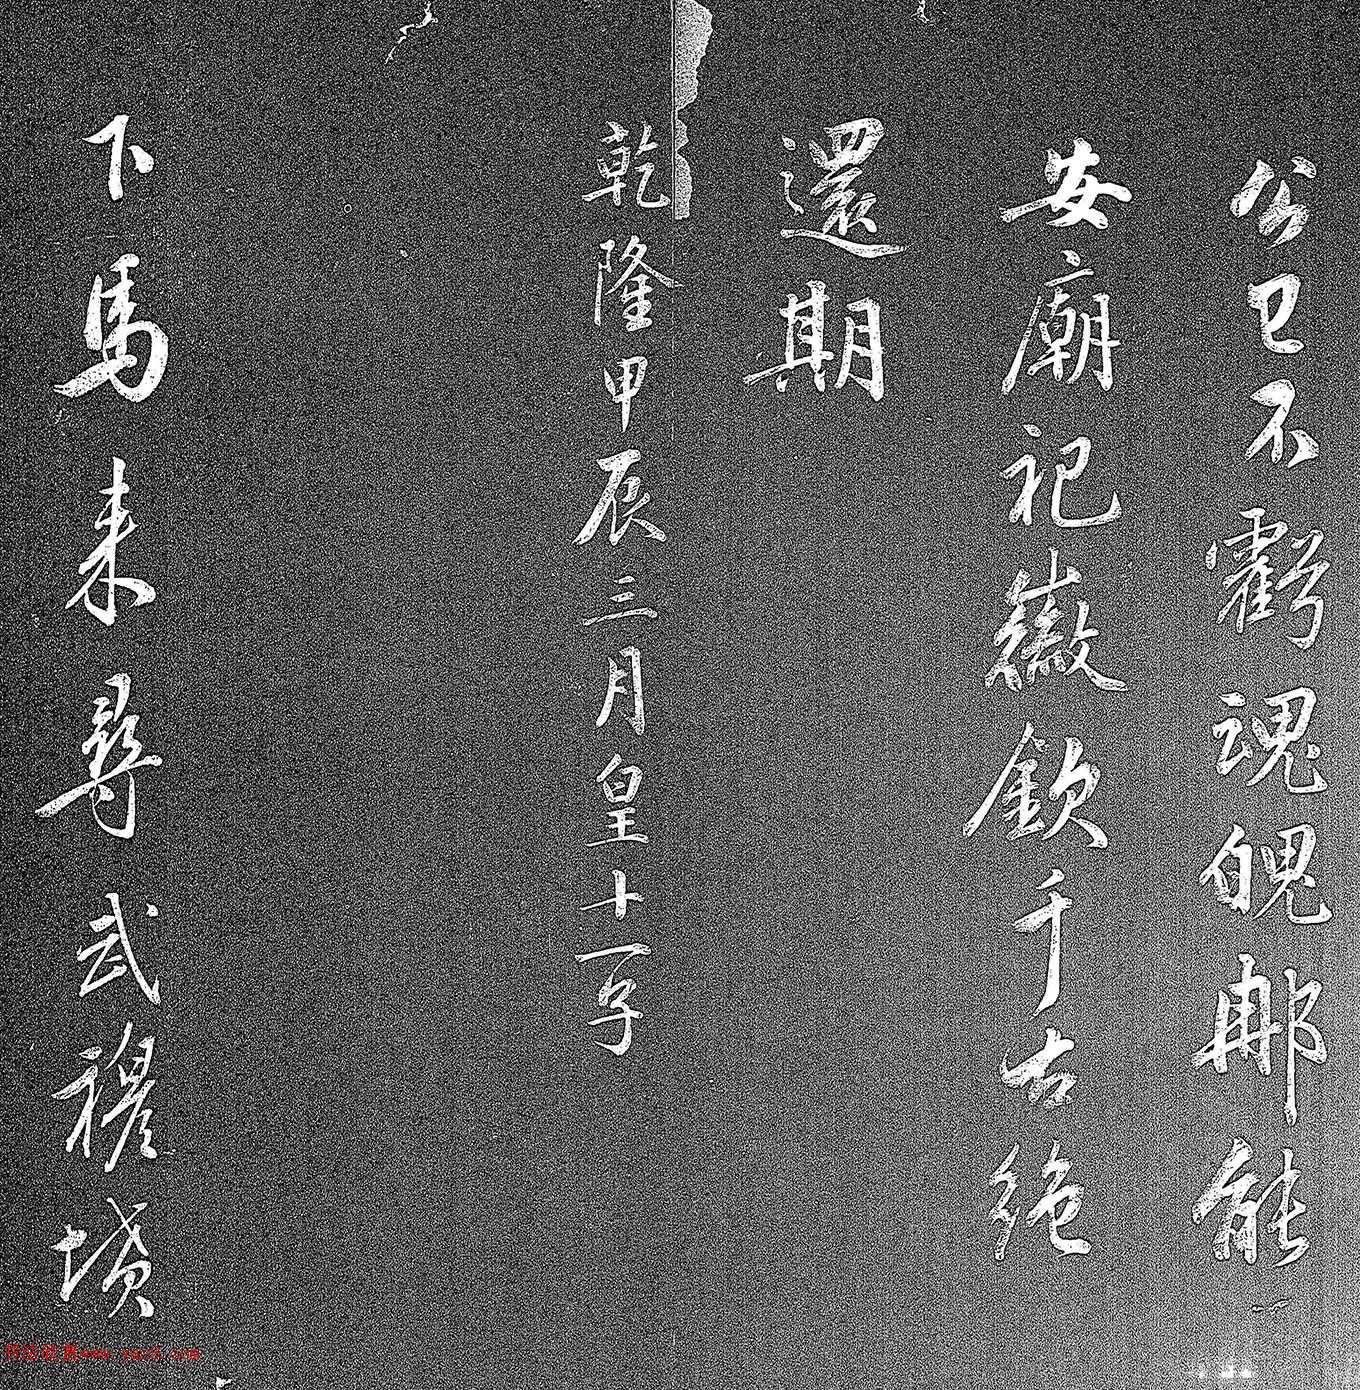 公已不虧魂魄那能
安廟祀徽欽千古絶
還期
乾隆甲辰三月皇十一子
下馬来尋武穆墳
书法欣赏www.yac8.com